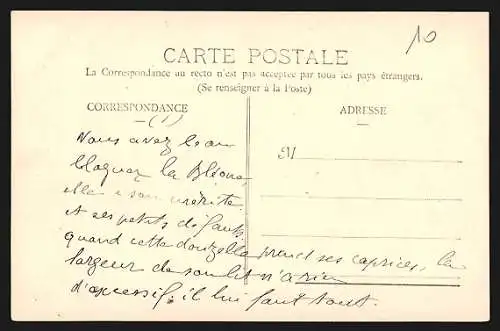 10
CARTE POSTALE
La Correspondance au recto n'est pas acceptée par tous les pays étrangers.
(Se renseigner à la Poste)
CORRESPONDANCE
ADRESSE
(1)
Vous avez beau
blaguer la Bléone,
elle a son mérite
et ses petits défauts
quand cette donzelle prend ses caprices, la
largeur de son lit n'a rien
d'excessif; il lui faut tout.
M